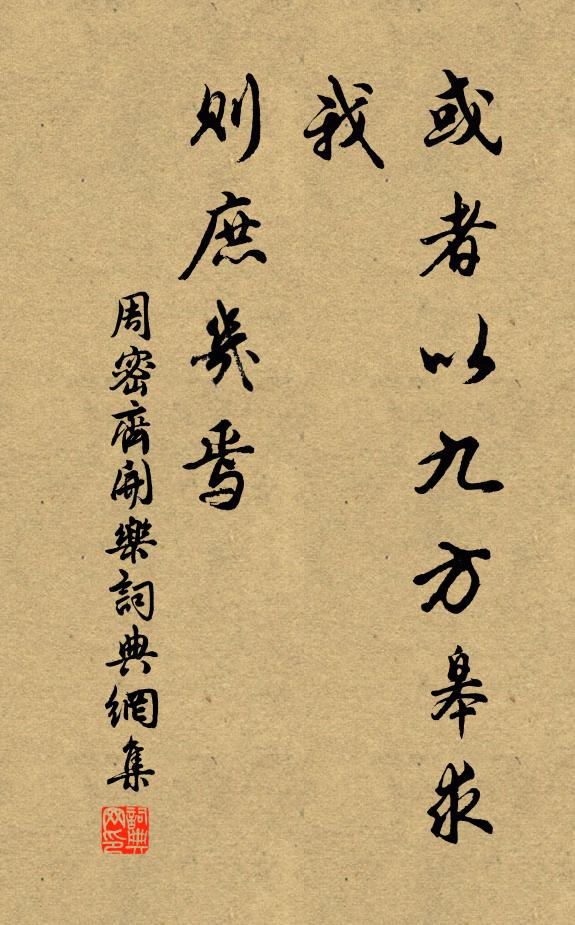 或者以九方皋求
我
則庶幾焉
周密齊開樂詞典網集
詞典
网印